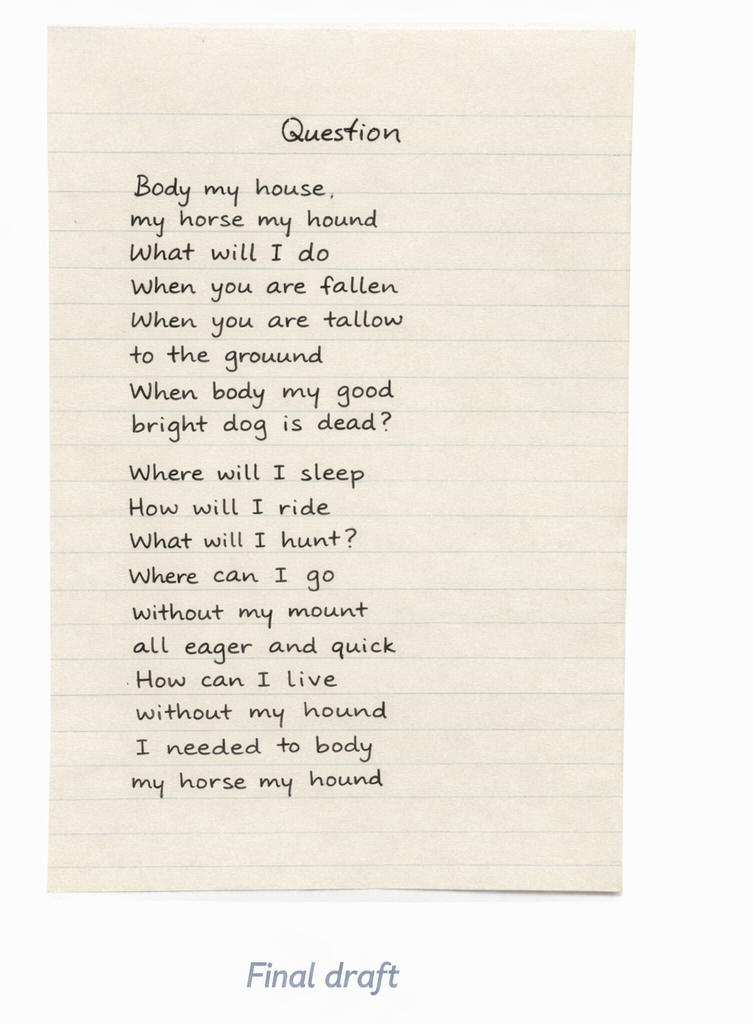 Question
Body my house,
my horse my hound
What will I do
When you are fallen
When you are tallow
to the grouund
When body my good
bright dog is dead?
Where will I sleep
How will I ride
What will I hunt?
Where can I go
without my mount
all eager and quick
How can I live
without my hound
I needed to body
my horse my hound
Final draft